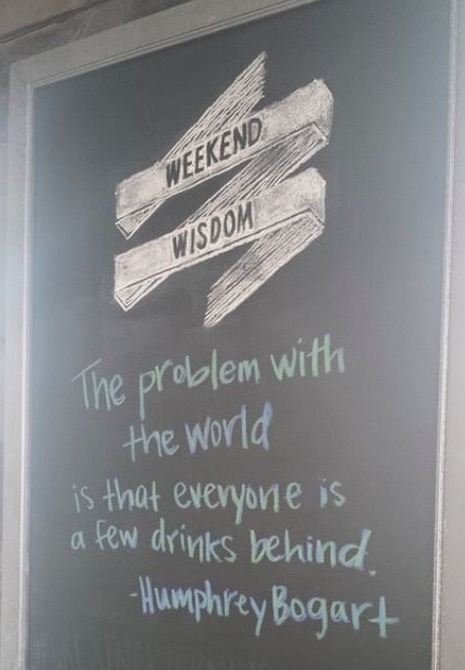 WEEKEND
WISDOM
The problem with
the world
is that everyone is
a few drinks behind.
-Humphrey Bogart